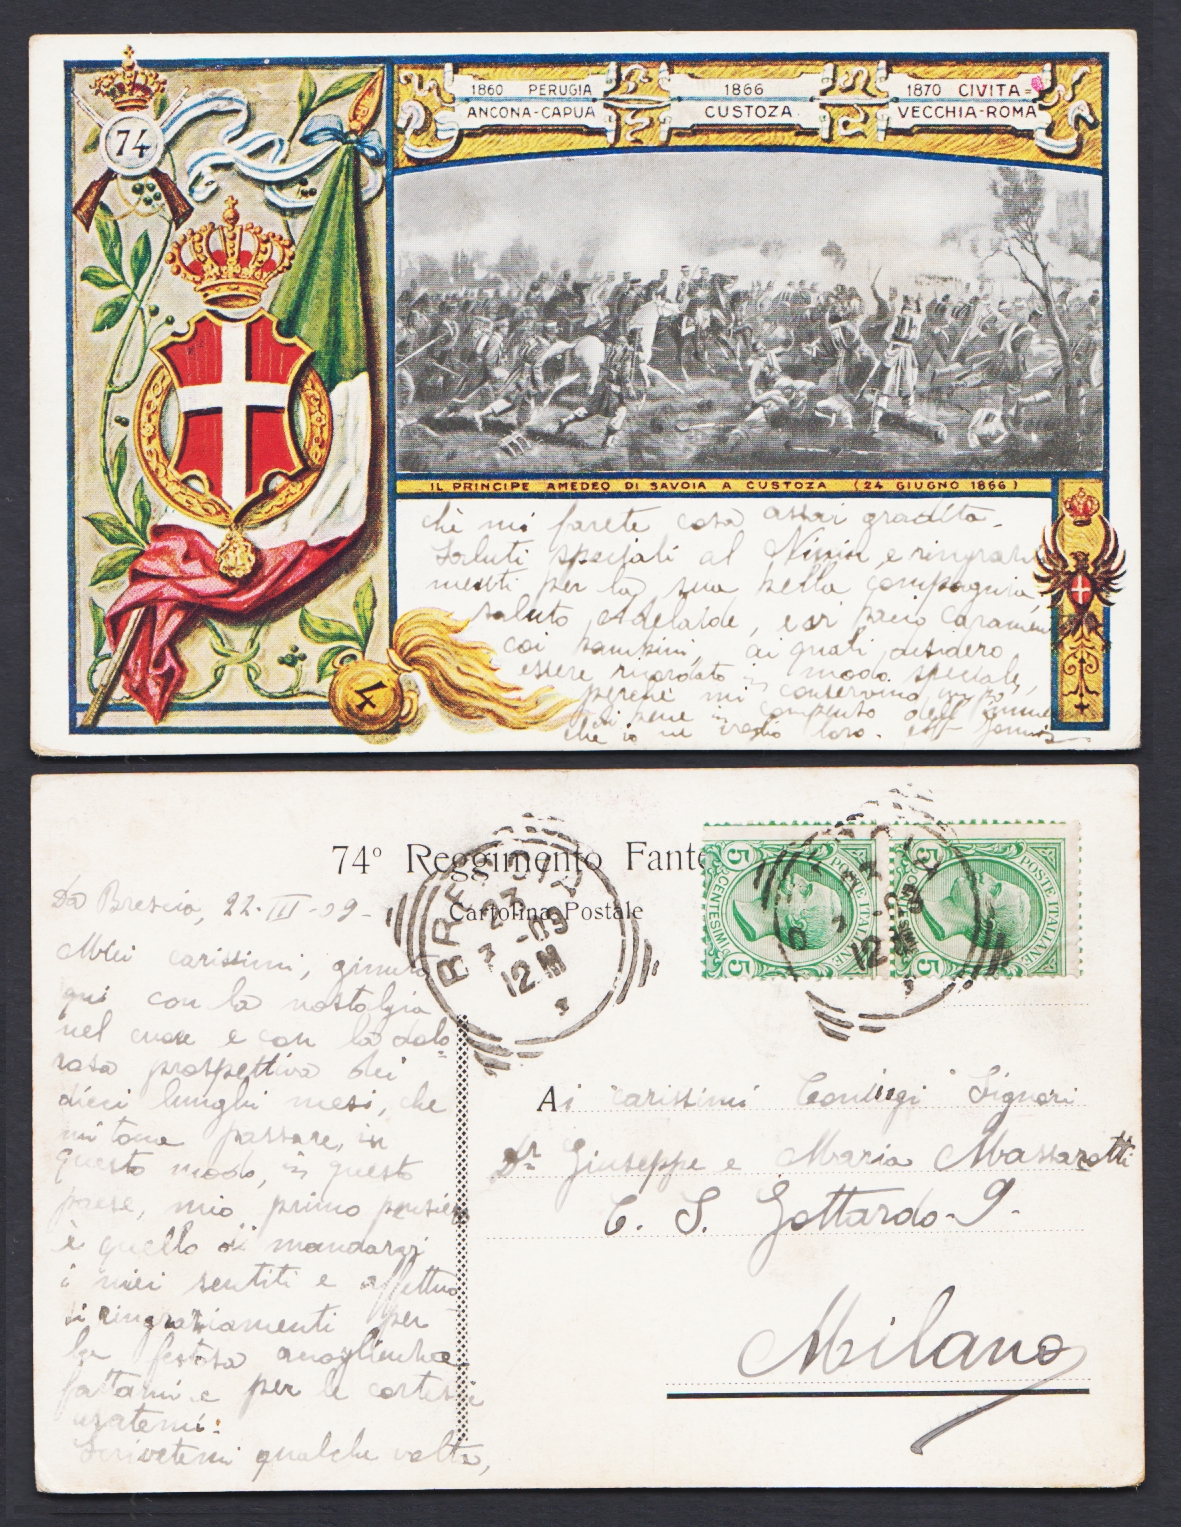 74
1860 PERUGIA
ANCONA-CAPUA
1866
CUSTOZA
1870 CIVITA=
VECCHIA-ROMA
IL PRINCIPE AMEDEO DI SAVOIA A CUSTOZA (24 GIUGNO 1866)
chè mi farete cosa assai gradita.
Saluti speciali al Ninin e ringrazia
menti per la sua bella compagnia,
saluto Adelaide,
coi bambini, ai quali desidero
essere ricordato in modo speciale,
perchè mi conservino un pò
di bene in compenso dell'
che io voglio loro.
4
74º Reggimento Fante
Cartolina Postale
Da Brescia, 22-III-09-
BRESCIA
23
3 -09
12 M
POSTE ITALIANE
CENTESIMI 5
POSTE ITALIANE
CENTESIMI 5
Miei carissimi, giunto
qui con la nostalgia
nel cuore e con la dolo
rosa prospettiva dei
dieci lunghi mesi, che
mi tocca passare, in
questo modo, in questo
paese, mio primo pensiero
è quello di mandarvi
i miei sentiti e affettuo
si ringraziamenti per
la festosa accoglienza
fattami e per le cortesie
usatemi:
Scrivetemi qualche volta,
Ai carissimi Coniugi Signori
Dr Giuseppe e Maria Massarotti
C. S. Gottardo-9-
Milano